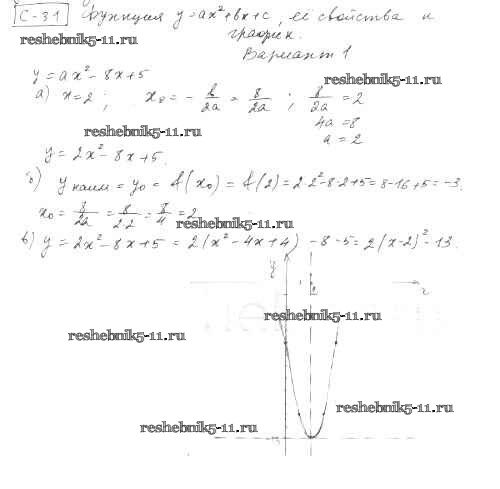 С-31 Функция y=ax²+bx+c, её свойства и
график.
reshebnik5-11.ru
Вариант 1
y=ax²-8x+5
reshebnik5-11.ru
а) x=2; x₀=-b/2a=8/2a; 8/2a=2
4a=8
reshebnik5-11.ru
a=2
y=2x²-8x+5.
б) y наим = y₀ = f(x₀) = f(2)=2·2²-8·2+5=8-16+5=-3.
x₀=8/2a=8/2·2=8/4=2
reshebnik5-11.ru
в) y=2x²-8x+5=2(x²-4x+4)-8-5=2(x-2)²-13.
y
1 2 x
reshebnik5-11.ru
reshebnik5-11.ru
reshebnik5-11.ru
reshebnik5-11.ru
-13